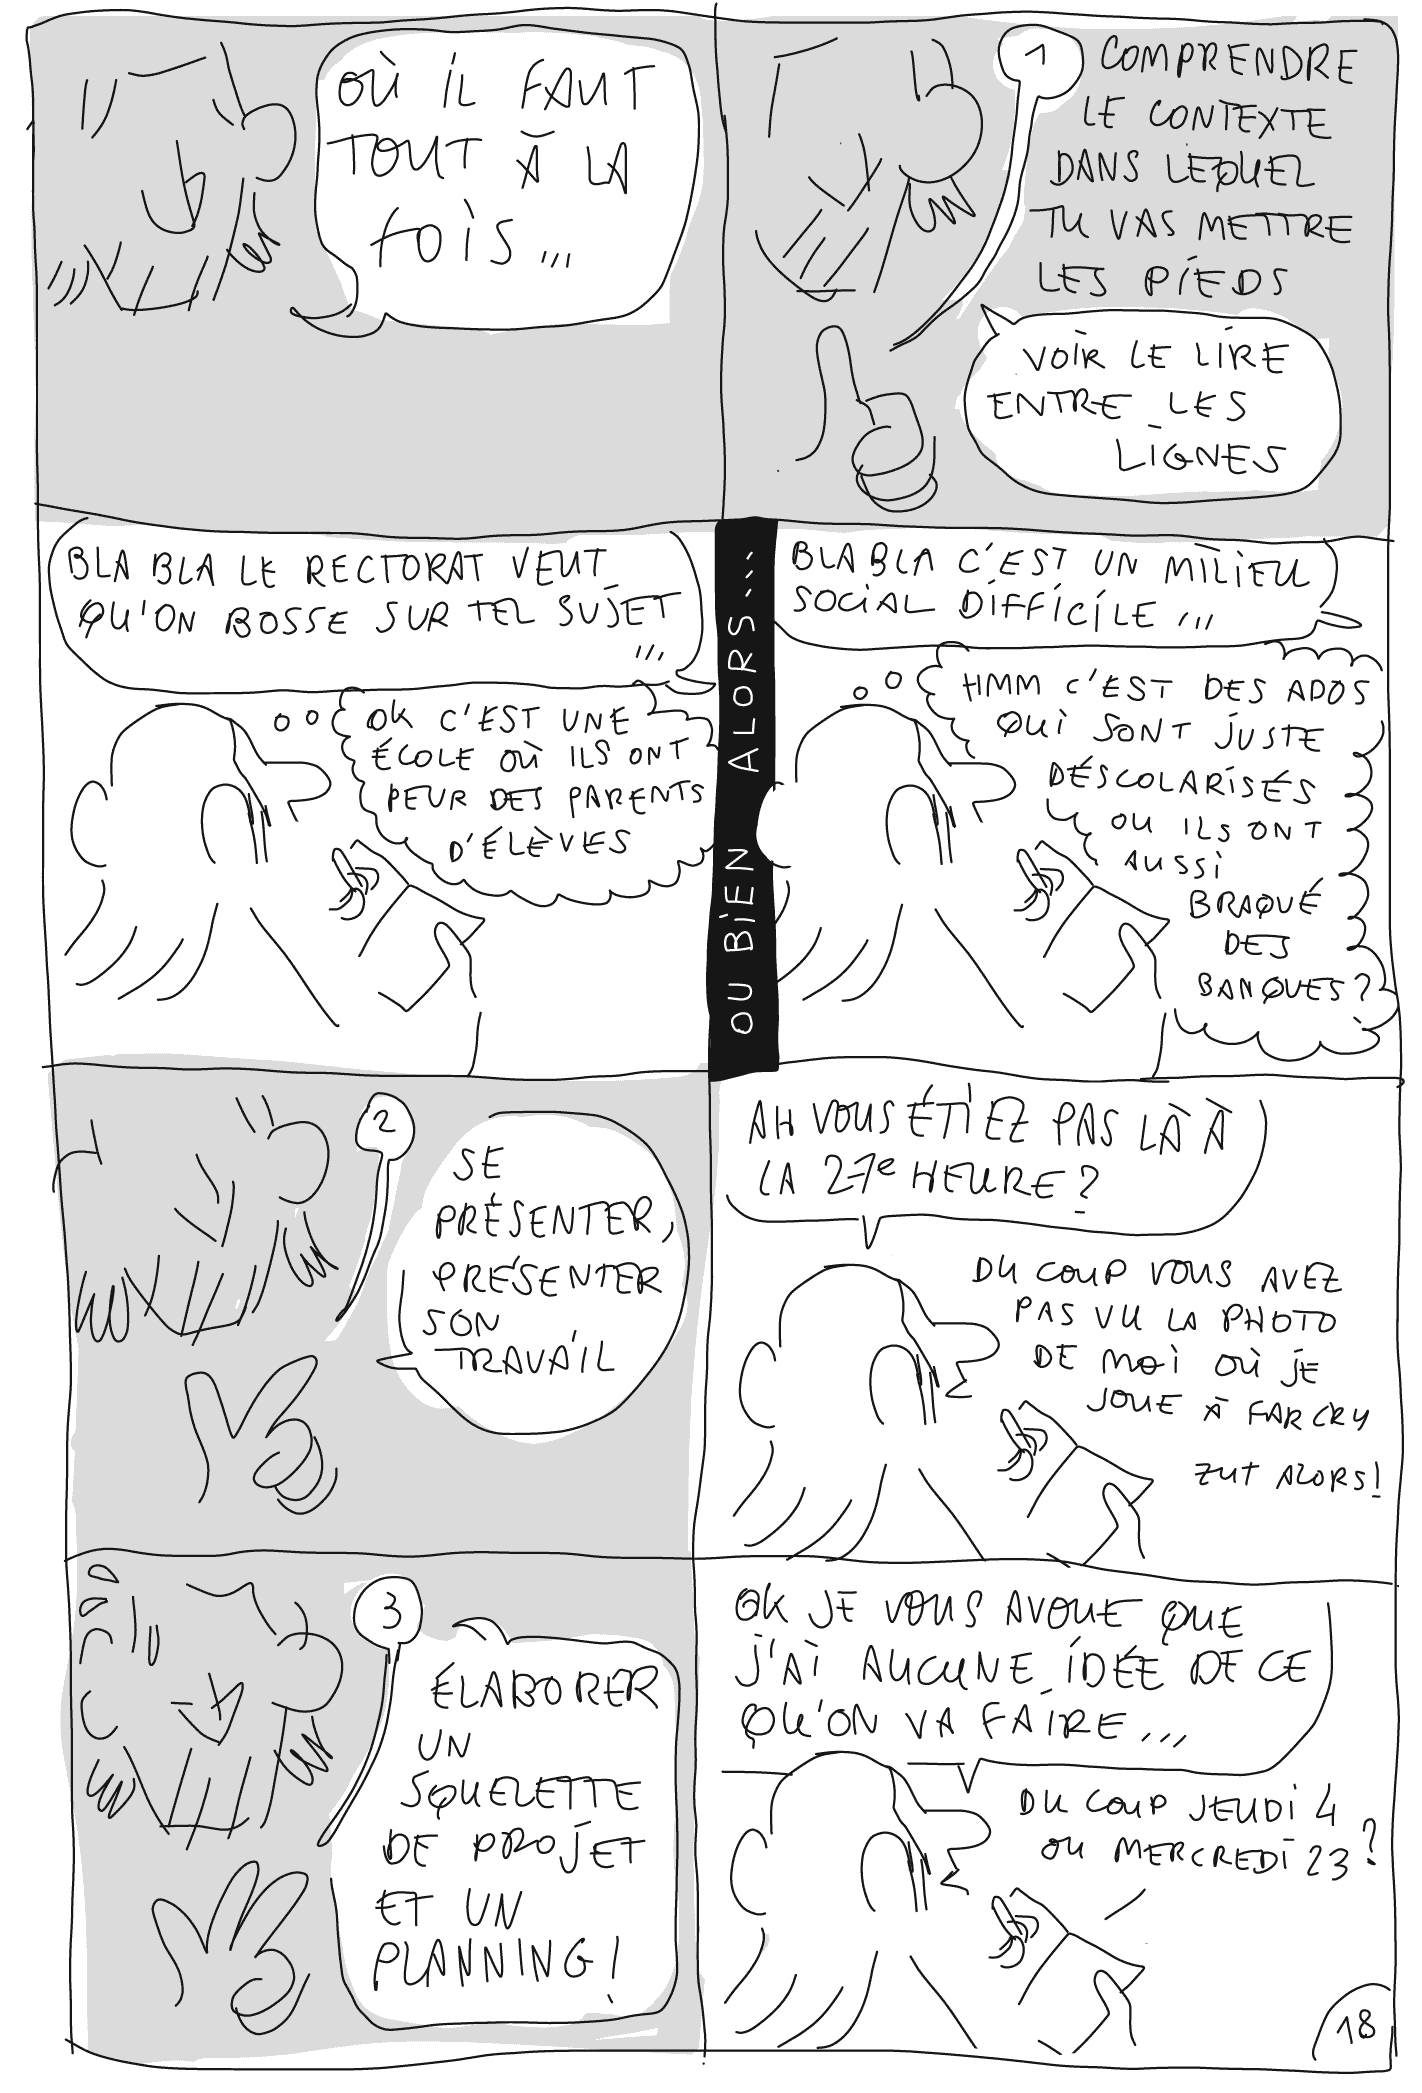 OÙ IL FAUT
TOUT À LA
FOIS...
1
COMPRENDRE
LE CONTEXTE
DANS LEQUEL
TU VAS METTRE
LES PIEDS
VOIR LE LIRE
ENTRE LES
LIGNES
BLA BLA LE RECTORAT VEUT
QU'ON BOSSE SUR TEL SUJET
...
OK C'EST UNE
ÉCOLE OÙ ILS ONT
PEUR DES PARENTS
D'ÉLÈVES
OU BIEN ALORS...
BLA BLA C'EST UN MILIEU
SOCIAL DIFFICILE...
HMM C'EST DES ADOS
QUI SONT JUSTE
DÉSCOLARISÉS
OU ILS ONT
AUSSI
BRAQUÉ
DES
BANQUES?
2
SE
PRÉSENTER,
PRÉSENTER
SON
TRAVAIL
AH VOUS ÉTIEZ PAS LÀ À
LA 27e HEURE?
DU COUP VOUS AVEZ
PAS VU LA PHOTO
DE MOI OÙ JE
JOUE À FARCRY
ZUT ALORS!
3
ÉLABORER
UN
SQUELETTE
DE PROJET
ET UN
PLANNING!
OK JE VOUS AVOUE QUE
J'AI AUCUNE IDÉE DE CE
QU'ON VA FAIRE...
DU COUP JEUDI 4
OU MERCREDI 23?
18